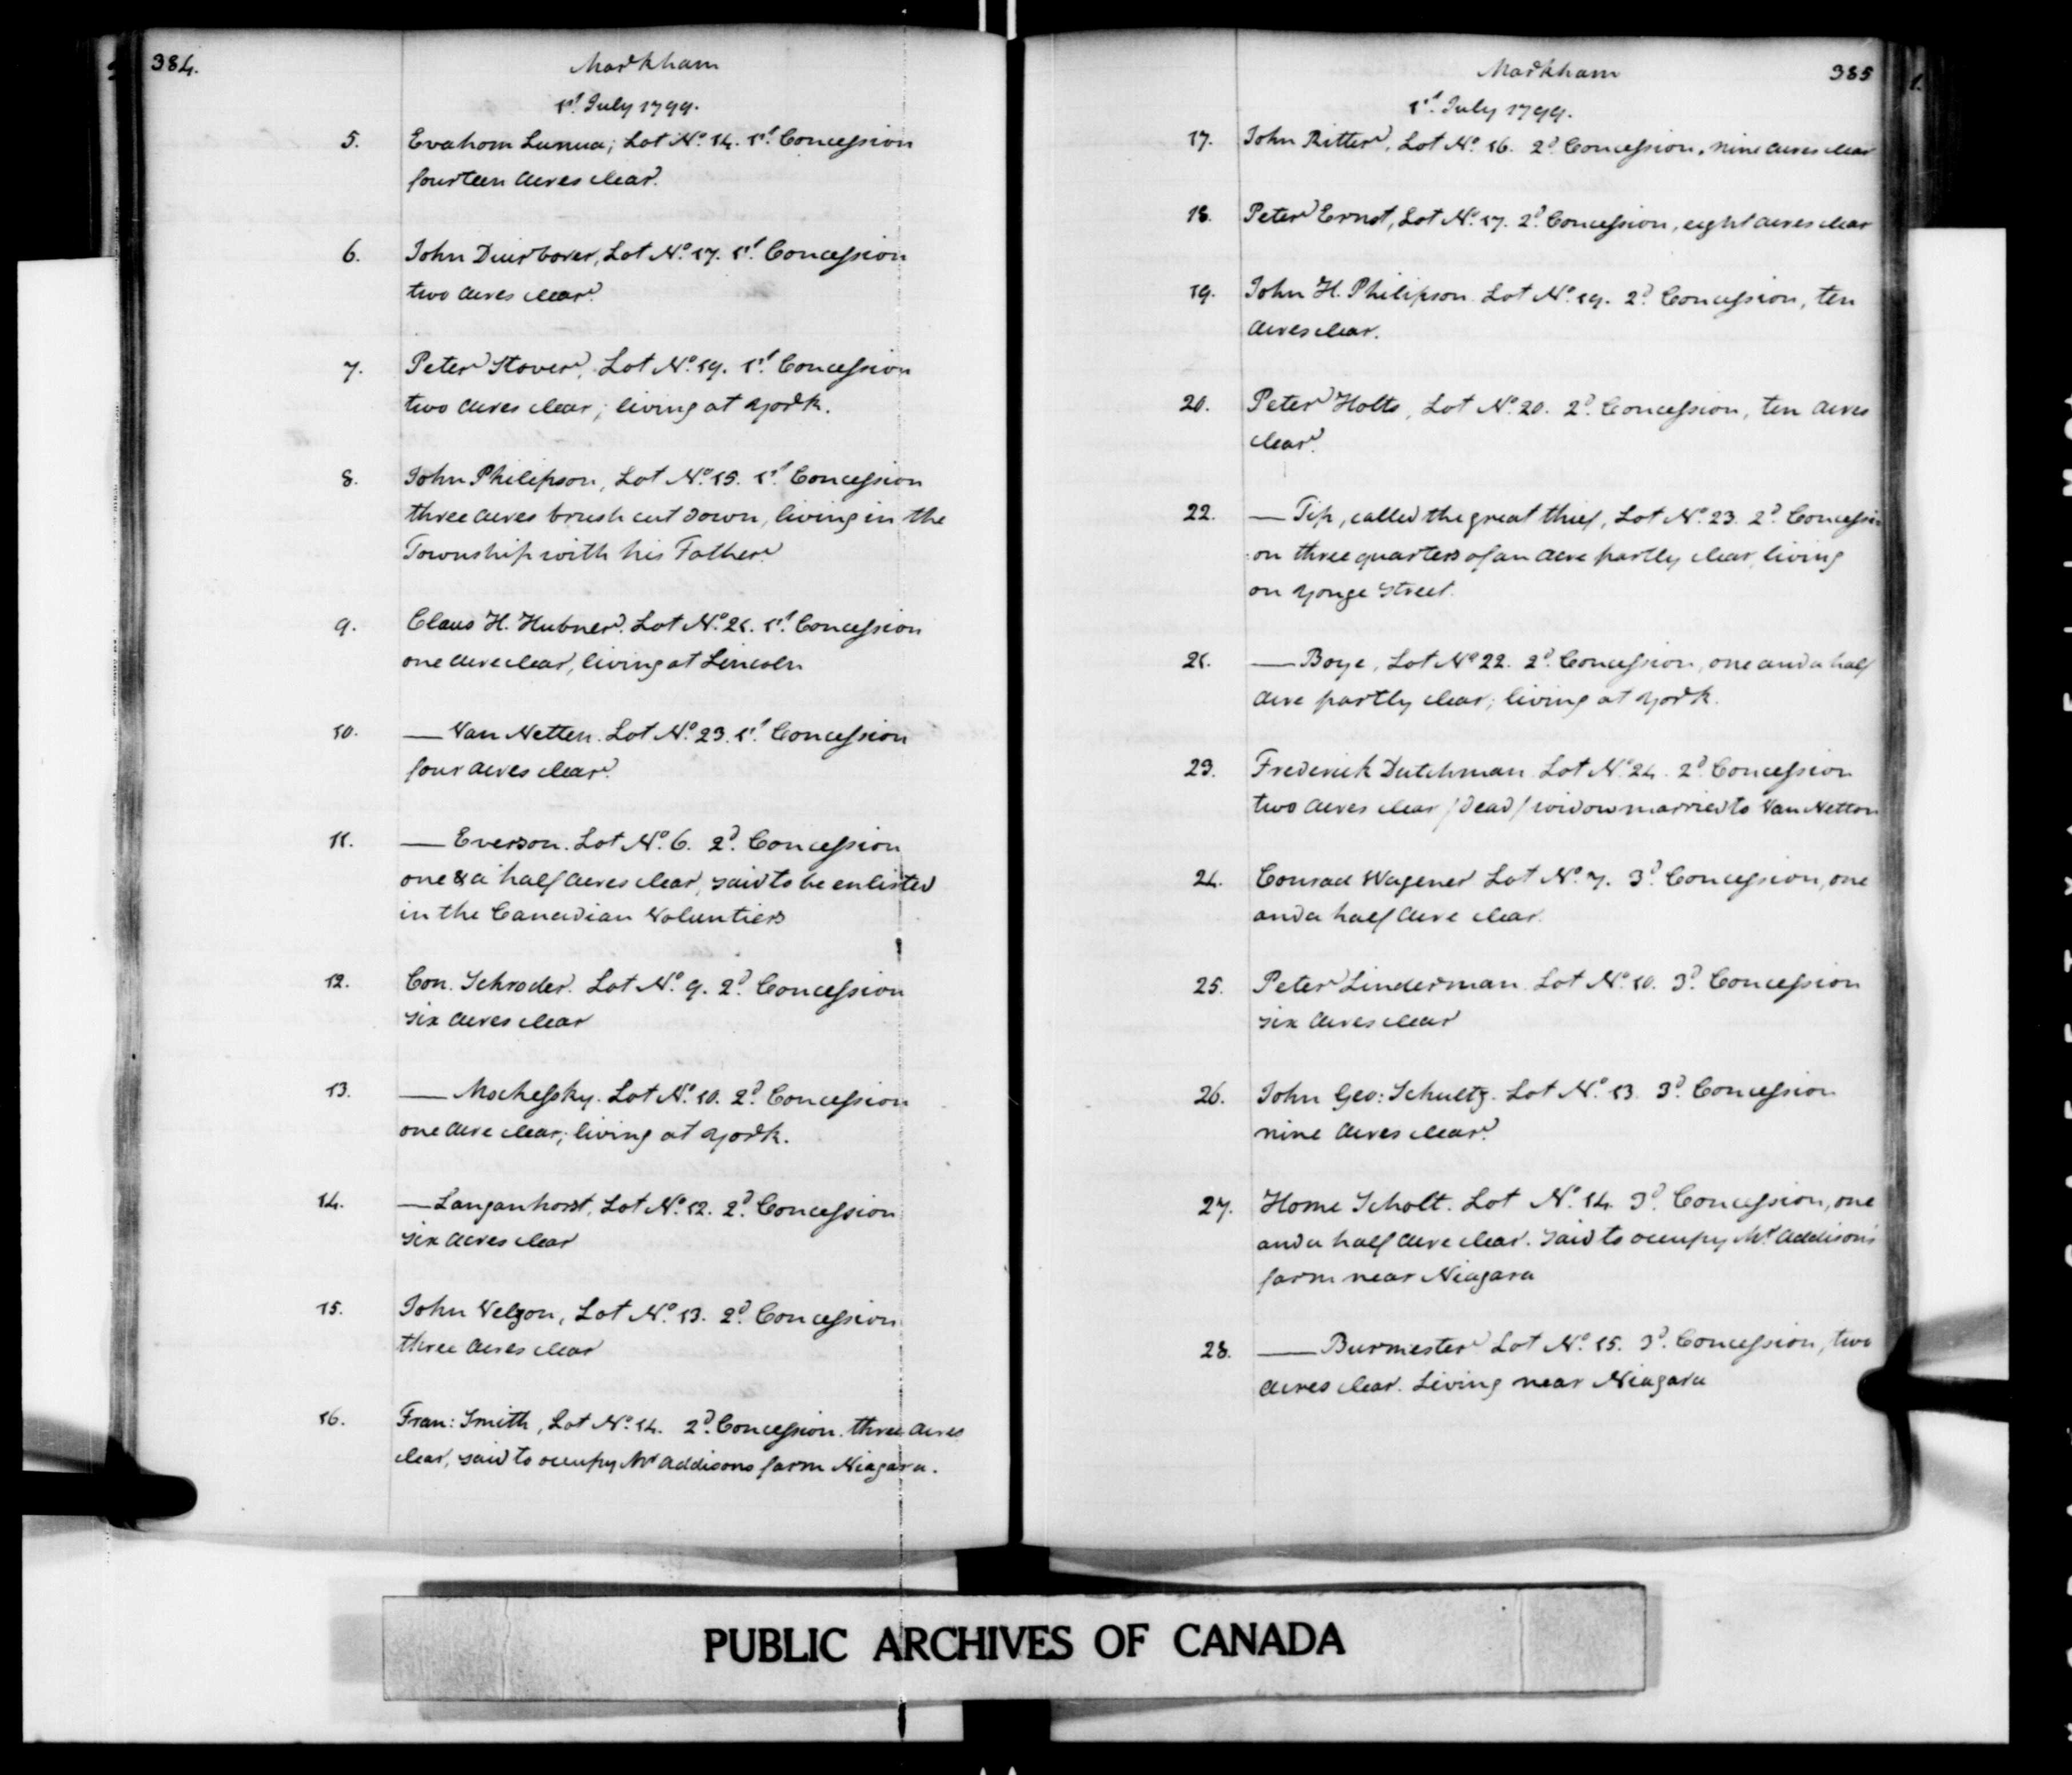 384.
Markham
1st. July 1799.
5. Evahom Lunua; Lot No. 14. 1st. Concession
fourteen acres clear.
6. John Duirbover, Lot No. 17. 1st. Concession
two acres clear.
7. Peter Stover, Lot No. 19. 1st. Concession
two acres clear; living at York.
8. John Philipson, Lot No. 15. 1st. Concession
three acres brush cut down, living in the
Township with his Father.
9. Claus H. Hubner. Lot No. 21. 1st. Concession
one acre clear, living at Lincoln
10. — Van Netten. Lot No. 23. 1st. Concession
four acres clear.
11. — Everson. Lot No. 6. 2d. Concession
one & a half acres clear, said to be enlisted
in the Canadian Voluntiers
12. Con. Schroder. Lot No. 9. 2d. Concession
six acres clear
13. — Mochessky. Lot No. 10. 2d. Concession
one acre clear; living at York.
14. — Langanhorst, Lot No. 12. 2d. Concession
six acres clear
15. John Velzon, Lot No. 13. 2d. Concession
three acres clear
16. Fran: Smith, Lot No. 14. 2d. Concession. three acres
clear, said to occupy Mr Addisons farm Niagara.
Markham
385
1st. July 1799.
17. John Ritter, Lot No. 16. 2d. Concession, nine acres clear
18. Peter Ernst, Lot No. 17. 2d. Concession, eight acres clear
19. John H. Philipson. Lot No. 19. 2d. Concession, ten
acres clear.
20. Peter Holts, Lot No. 20. 2d. Concession, ten acres
clear.
22. — Tip, called the great thief, Lot No. 23. 2d. Concessi
:on three quarters of an acre partly clear, living
on Yonge Street.
21. — Boye, Lot No 22. 2d. Concession, one and a half
acre partly clear; living at York.
23. Frederick Dutchman. Lot No. 24. 2d. Concession
two acres clear /dead/ widow married to Van Netton
24. Conrad Wagener Lot No. 7. 3d. Concession, one
and a half acre clear.
25. Peter Linderman. Lot No. 10. 3d. Concession
six acres clear
26. John Geo: Schultz. Lot No. 13. 3d. Concession
nine acres clear.
27. Home Scholt. Lot No. 14. 3d. Concession, one
and a half acre clear. said to occupy Mr Addison's
farm near Niagara
28. — Burmester Lot No. 15. 3d. Concession, two
acres clear. Living near Niagara
PUBLIC ARCHIVES OF CANADA